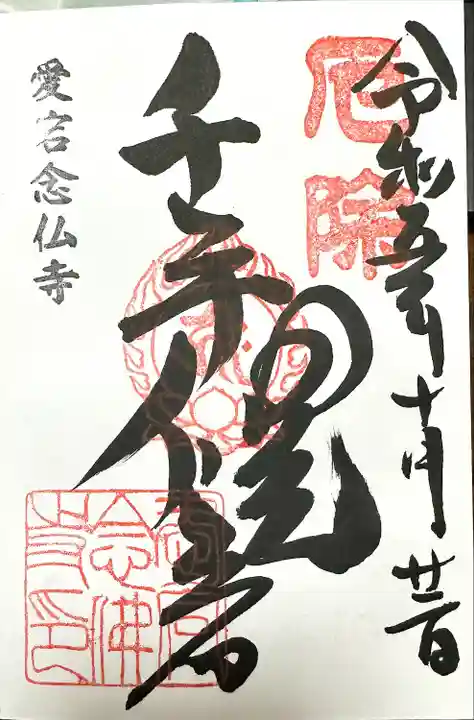 厄除
令和五年十月
千手観音
愛宕念仏寺
愛宕
念佛
寺印